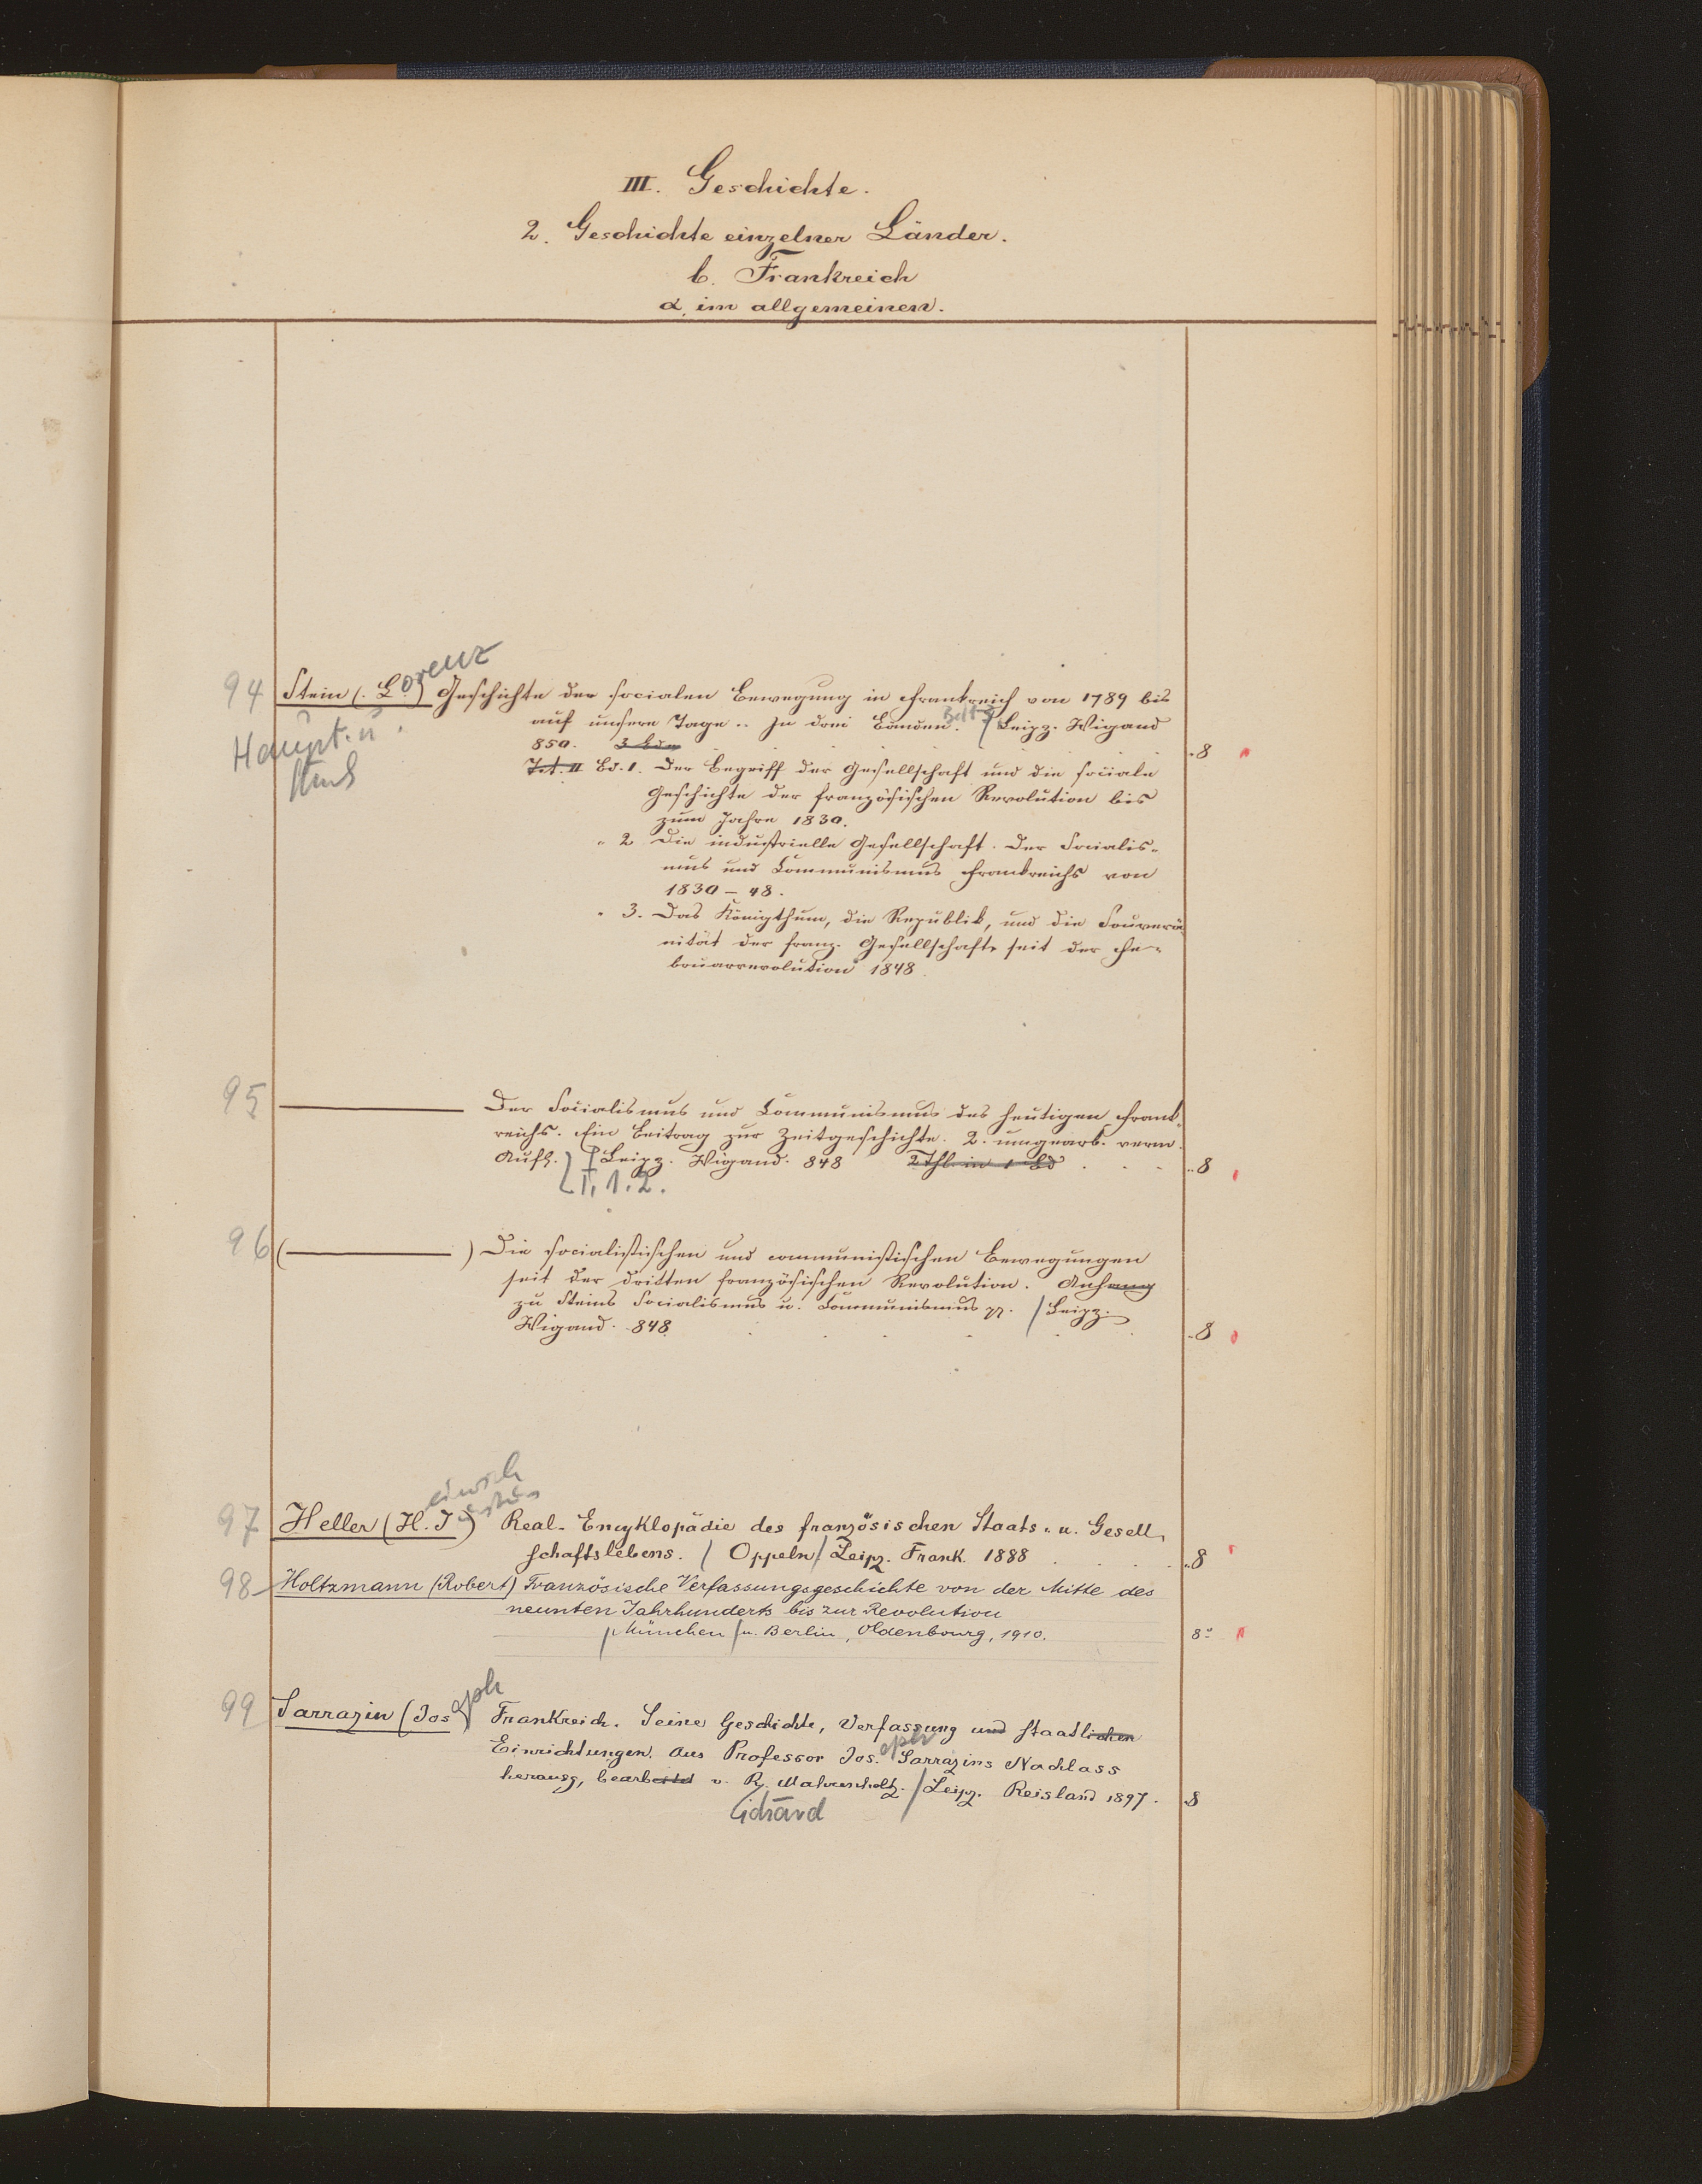 III. Geschichte.
2. Geschichte einzelner Länder.
b. Frankreich
α. im allgemeinen.
94 Stein (L.orenz) Geschichte der socialen Bewegung in Frankreich von 1789 bis
Haupt. u.
auf unsere Tage .. In drei Bänden. Bd 1-3 / Leipz. Wigand
850. 3 Bde 8
Tit. II Bd. 1. Der Begriff der Gesellschaft und die sociale
Geschichte der französischen Revolution bis
zum Jahre 1830.
" 2 Die industrielle Gesellschaft. Der Socialis-
mus und Communismus Frankreichs von
1830 – 48.
" 3. Das Königthum, die Republik, und die Souverä-
nität der franz. Gesellschaft seit der Fe-
bruarrevolution 1848.
95 ——— Der Socialismus und Communismus des heutigen Frank-
reichs. Ein Beitrag zur Zeitgeschichte. 2. umgearb. verm.
Aufl. / Leipz. Wigand. 848 2 Thl. in 1 Bd 8
T. 1. 2.
96 (———) Die socialistischen und communistischen Bewegungen
seit der dritten französischen Revolution. Anhang
zu Steins Socialismus u. Communismus pp. / Leipz.
Wigand. 848. 8
97 Heller (H. J) Real-Encyklopädie des französischen Staats- u. Gesell-
schaftslebens. / Oppeln / Leipz. Frank. 1888 8
98 Holtzmann (Robert) Französische Verfassungsgeschichte von der Mitte des
neunten Jahrhunderts bis zur Revolution
/ München / u. Berlin, Oldenbourg, 1910. 8°
99 Sarrazin (Joseph) Frankreich. Seine Geschichte, Verfassung und staatlichen
Einrichtungen. Aus Professor Jos.eph Sarrazins Nachlass
herausg, bearbeitet v. R. Mahrenholtz. / Leipz. Reisland 1897. 8